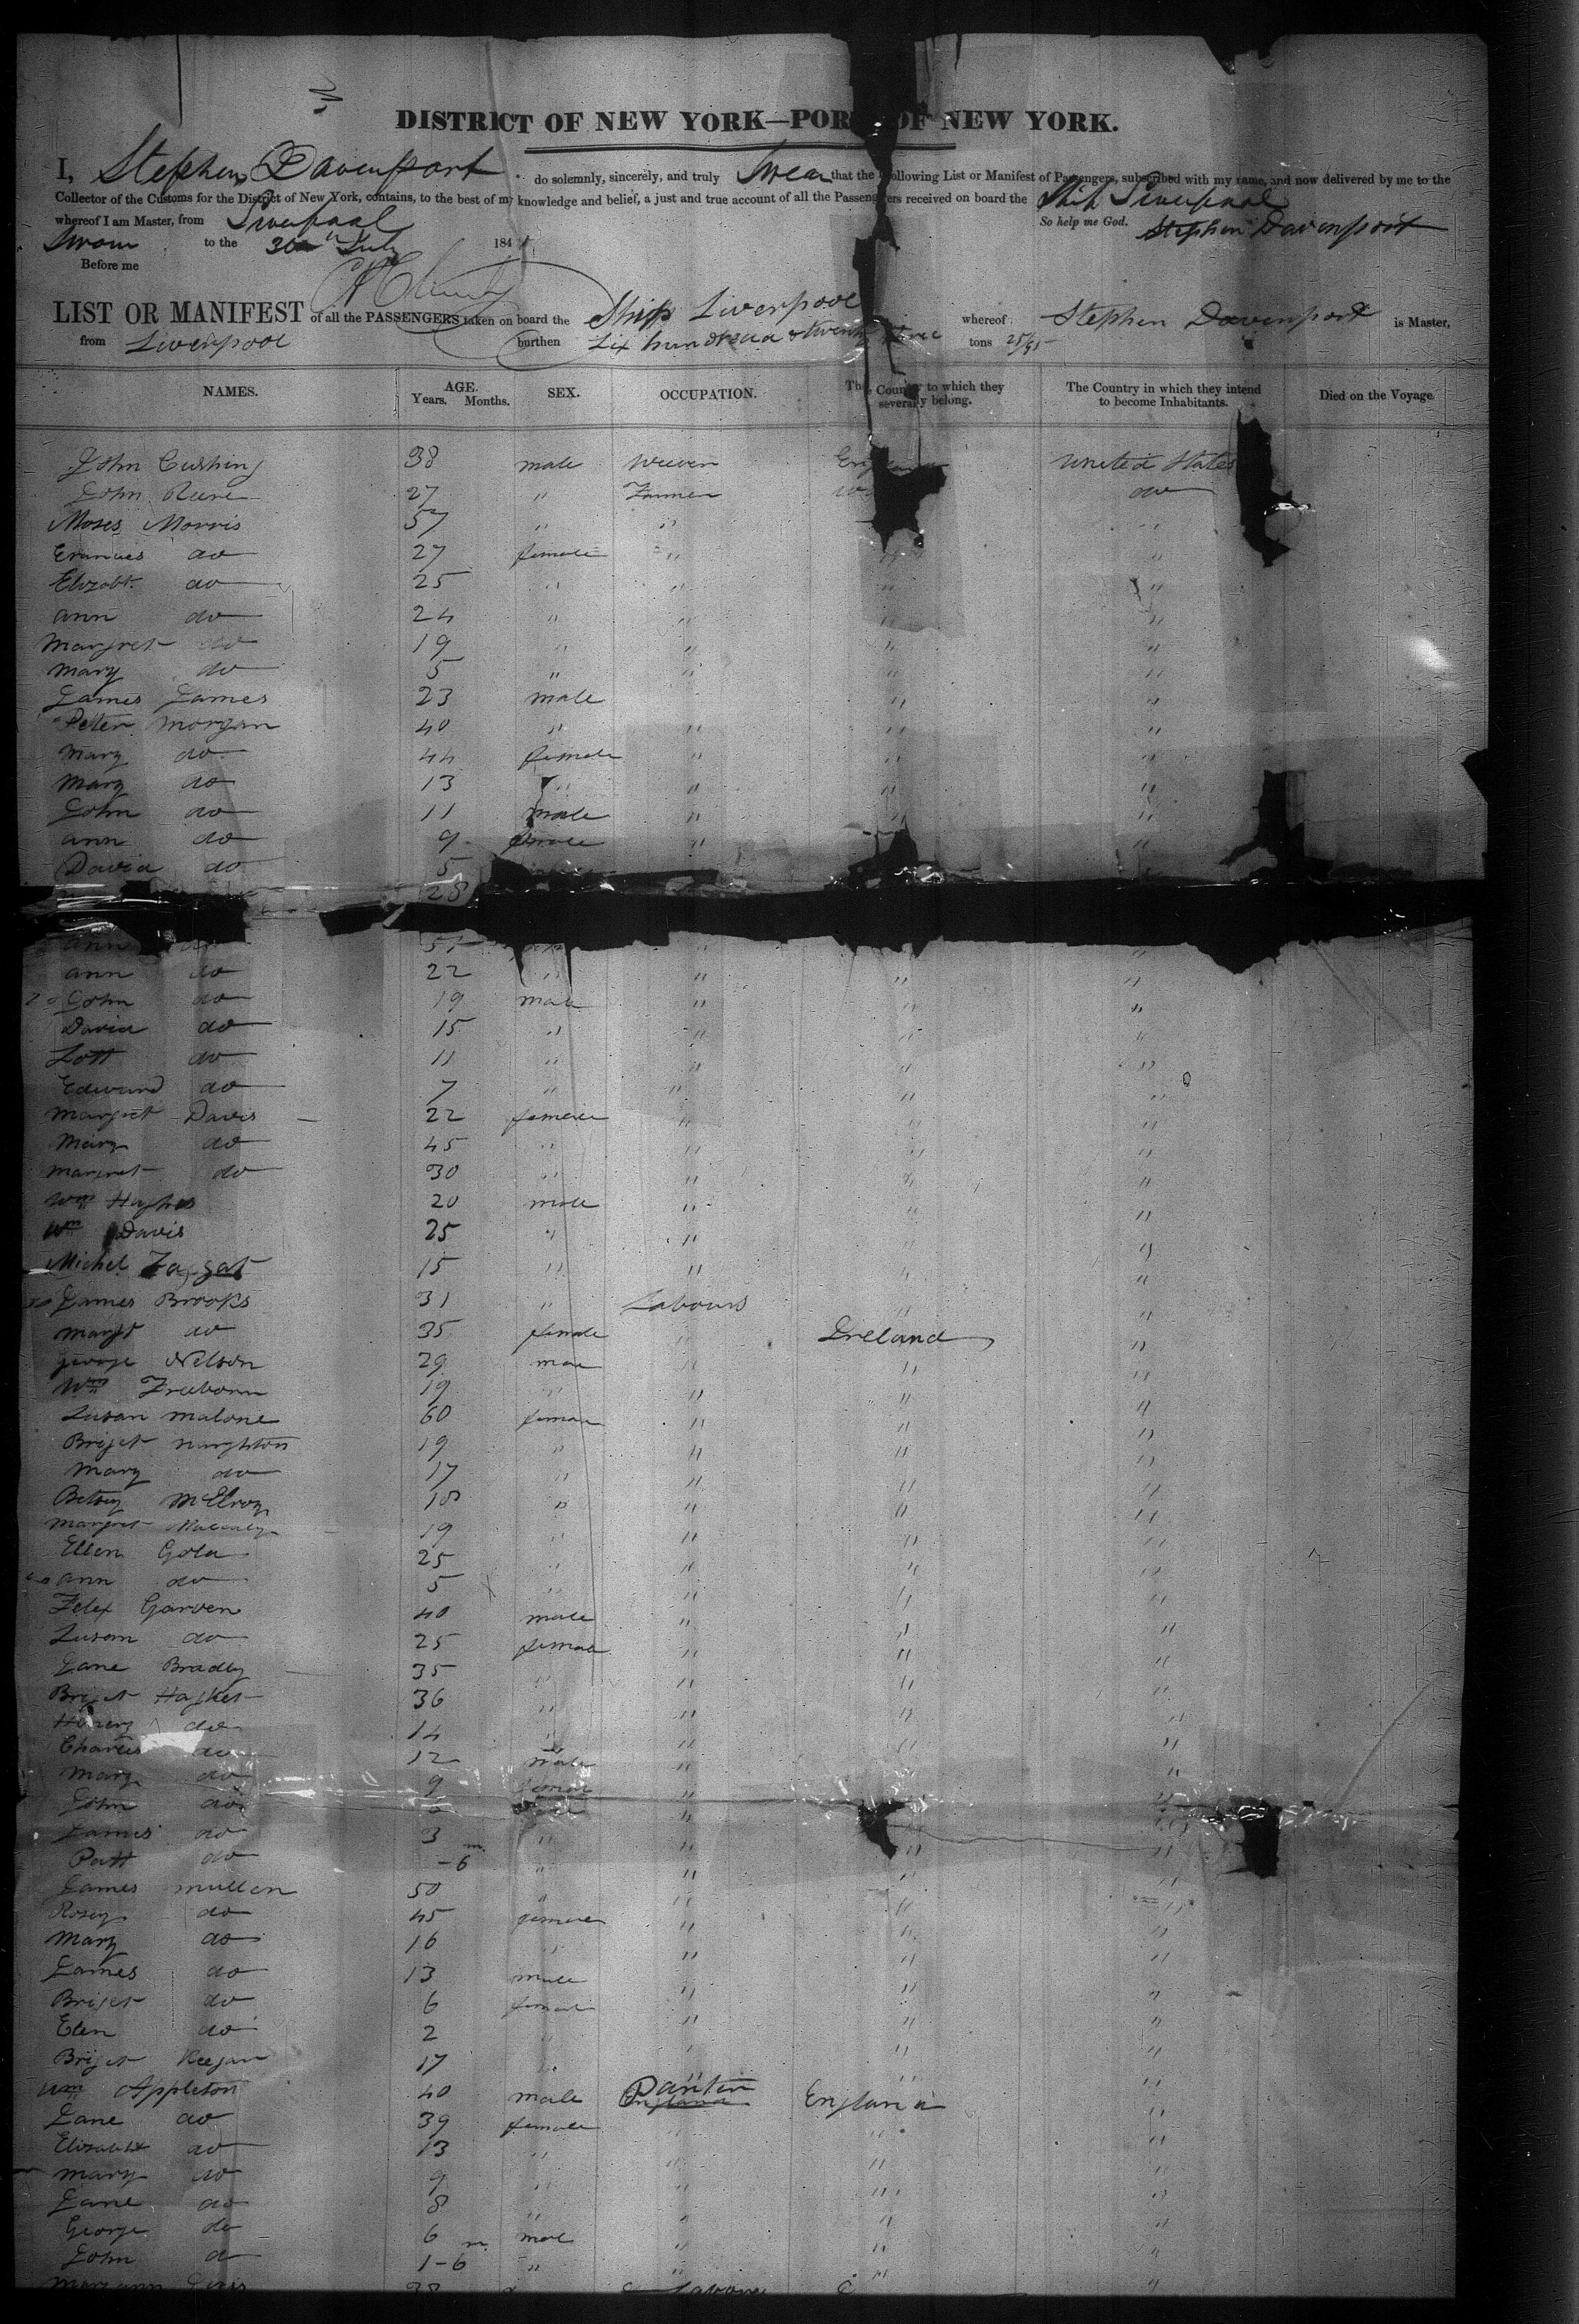 DISTRICT OF NEW YORK—PORT OF NEW YORK.
I, Stephen Davenport do solemnly, sincerely, and truly Swear that the following List or Manifest of Passengers, subscribed with my name, and now delivered by me to the
Collector of the Customs for the District of New York, contains, to the best of my knowledge and belief, a just and true account of all the Passengers received on board the Ship Liverpool
whereof I am Master, from Liverpool So help me God. Stephen Davenport
Sworn to the 30th July 184
Before me
LIST OR MANIFEST of all the PASSENGERS taken on board the Ship Liverpool whereof Stephen Davenport is Master,
from Liverpool burthen Six hundred & twenty three tons 25/95
NAMES. AGE. Years. Months. SEX. OCCUPATION. The Country to which they severally belong. The Country in which they intend to become Inhabitants. Died on the Voyage.
John Cushing 38 male Weaver England United States
John Reese 27 " Farmer do do
Moses Morris 57 " " "
do 27 female " " "
Elizabt. do 25 " " " "
ann do 24 " " " "
Margret do 19 " " " "
Mary do 5 " " " "
James James 23 male " "
Peter Morgan 40 " " " "
Mary do 44 female " " "
Mary do 13 " " " "
John do 11 male " " "
ann do 9 female " " "
David do 5
28
ann do "
ann do 22 " " " "
John do 19 male " " "
David do 15 " " " "
Lott do 11 " " " "
Edward do 7 " " " "
Margret Davis 22 female " " "
Mary do 45 " " " "
Margret do 30 " " " "
Wm Hughes 20 male " " "
Wm Davis 25 " " " "
Michel 15 " " " "
James Brooks 31 " Labours " "
Margt do 35 female " Ireland "
George Nelson 29 male " " "
Wm Freeborn 19 " " " "
Susan Malone 60 female " " "
Brijet Naughton 19 " " " "
Mary do 17 " " " "
Betsey McElroy 18 " " " "
Margret 19 " " " "
Ellen Gola 25 " " " "
ann do 5 " " " "
Felix Garven 40 male " " "
Susan do 25 female " " "
Jane Bradly 35 " " " "
Brijet Haghes 36 " " " "
do 14 " " " "
Charles do 12 male " " "
Mary do 9 female " " "
John do " " "
James do 3 " " " "
Patt do -6 m " " " "
James Mullen 50 " " " "
Rosey do 45 female " " "
Mary do 16 " " " "
James do 13 male " " "
Brijet do 6 female " " "
Elen do 2 " " " "
Brijet Keegan 17 " " " "
Wm Appleton 40 male Painter England "
Jane do 39 female " " "
Elizabet do 13 " " " "
Mary do 9 " " " "
Jane do 8 " " " "
George do 6 male " " "
John d 1-6 m " " " "
Maryann 38 "